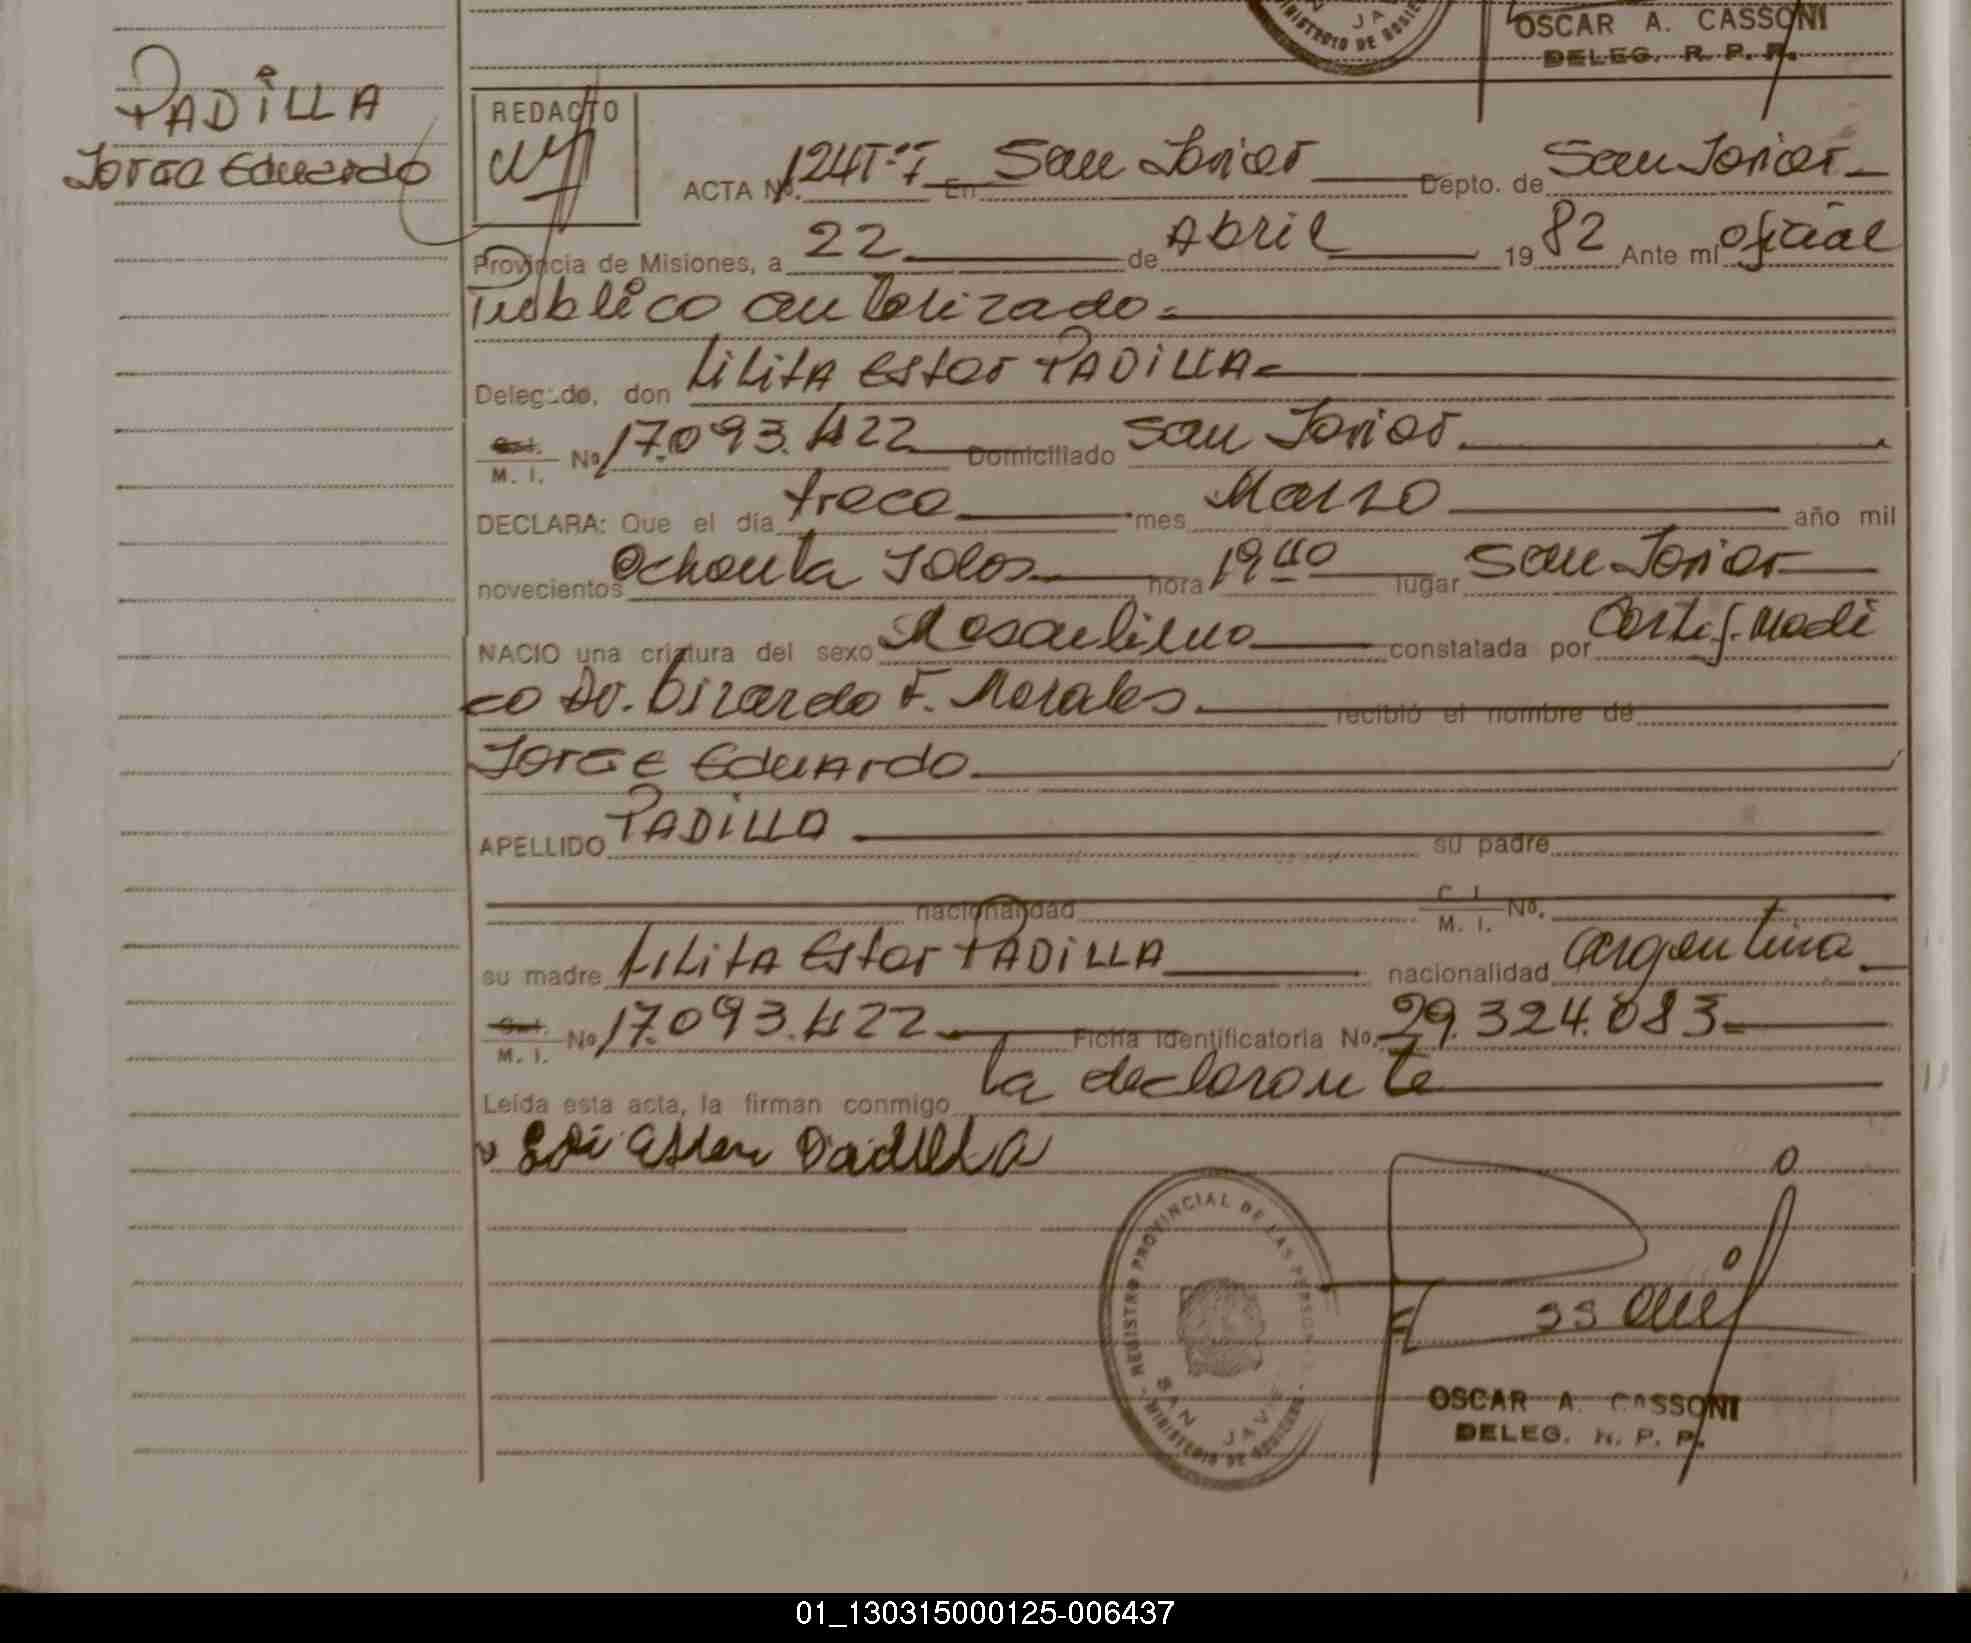 JA
MINISTERIO DE
OSCAR A. CASSONI
DELEG. R. P. P.
PADILLA
Jorge Eduardo
REDACTO
ACTA No. 124 T-I En San Javier Depto. de San Javier
Provincia de Misiones, a 22 de Abril 1982 Ante mí oficial
Publico autorizado
Delegado, don Lilita Ester PADILLA
M. I. No 17.093.422 Domiciliado San Javier
DECLARA: Que el día trece mes Marzo año mil
novecientos ochenta y dos hora 19 40 lugar San Javier
NACIO una criatura del sexo Masculino constatada por Certif. Medi
co Dr. Girardo F. Morales recibió el nombre de
Jorge Eduardo
APELLIDO PADILLA su padre
nacionalidad C. I. M. I. No.
su madre Lilita Ester PADILLA nacionalidad argentina
M. I. No 17.093.422 Ficha Identificatoria No. 29.324.083
Leída esta acta, la firman conmigo la declarante
Ester Padilla
REGISTRO PROVINCIAL DE LAS PERSONAS
SAN JAVIER
MINISTERIO DE GOBIERNO
OSCAR A. CASSONI
DELEG. R. P. P.
01_130315000125-006437